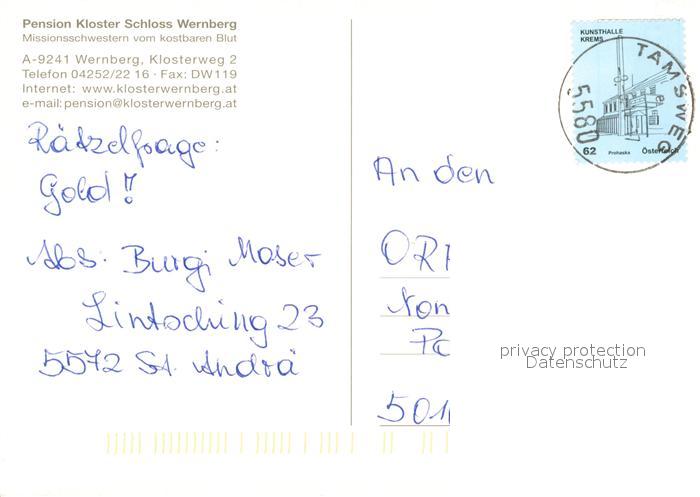 Pension Kloster Schloss Wernberg
Missionsschwestern vom kostbaren Blut
A-9241 Wernberg, Klosterweg 2
Telefon 04252/22 16 · Fax: DW119
Internet: www.klosterwernberg.at
e-mail: pension@klosterwernberg.at
Rätzelfrage:
Gold!
Abs: Burgi Moser
Lintsching 23
5572 St. Andrä
KUNSTHALLE
KREMS
62 Prohaska Österreich
TAMSWEG
5580
An den
ORF
Non
Po
501
privacy protection
Datenschutz